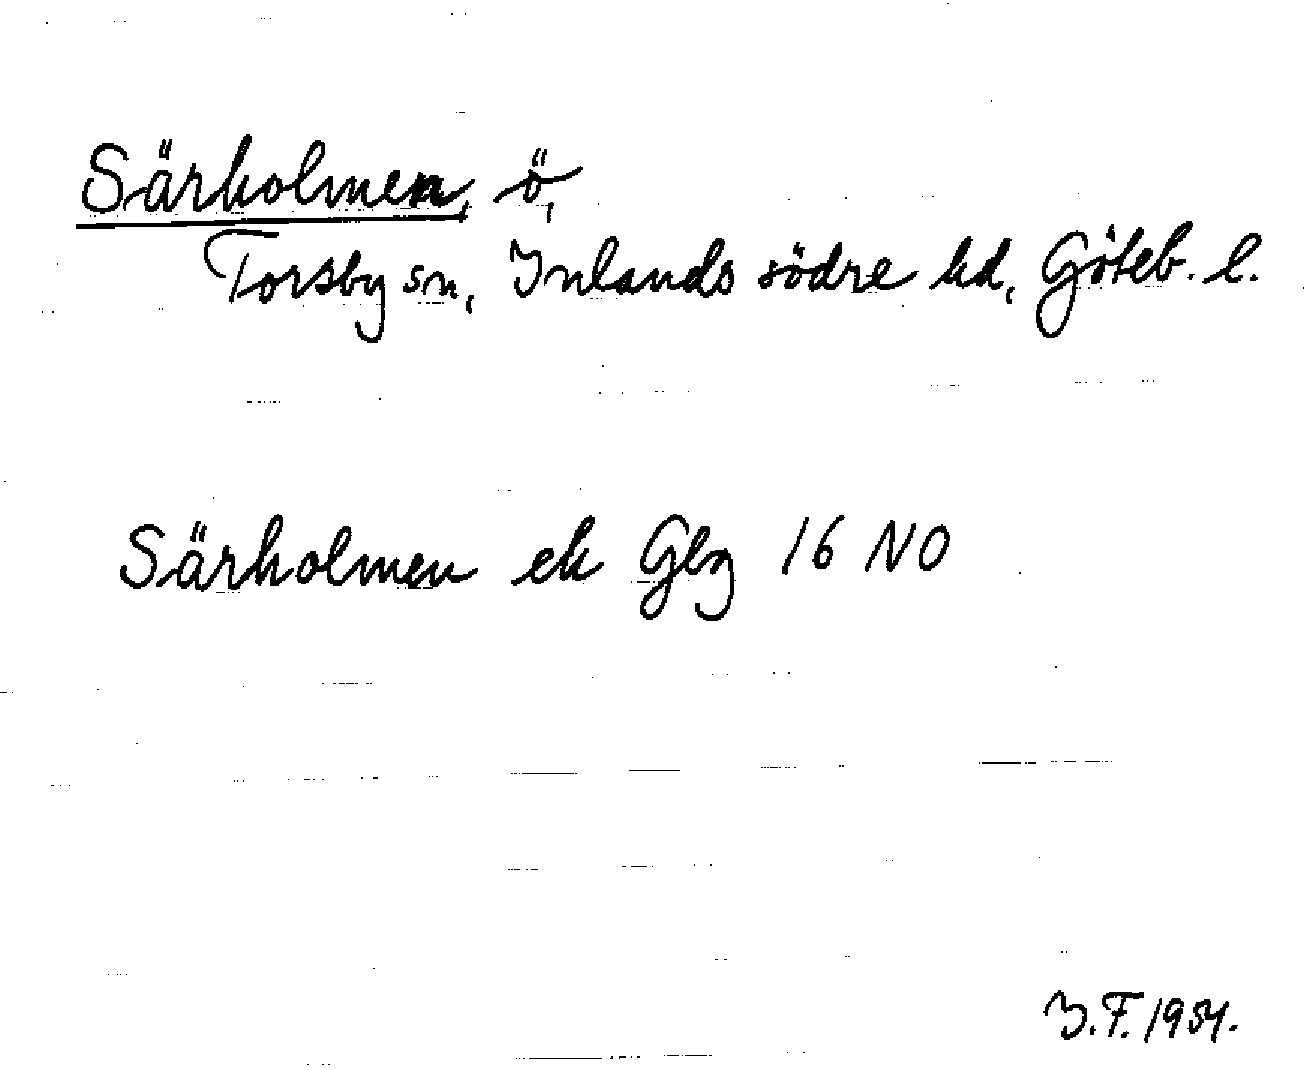 Särholmen, ö,
Torsby sn, Inlands södre hd, Göteb. l.
Särholmen ek Gbg 16 NO
I.F. 1954.